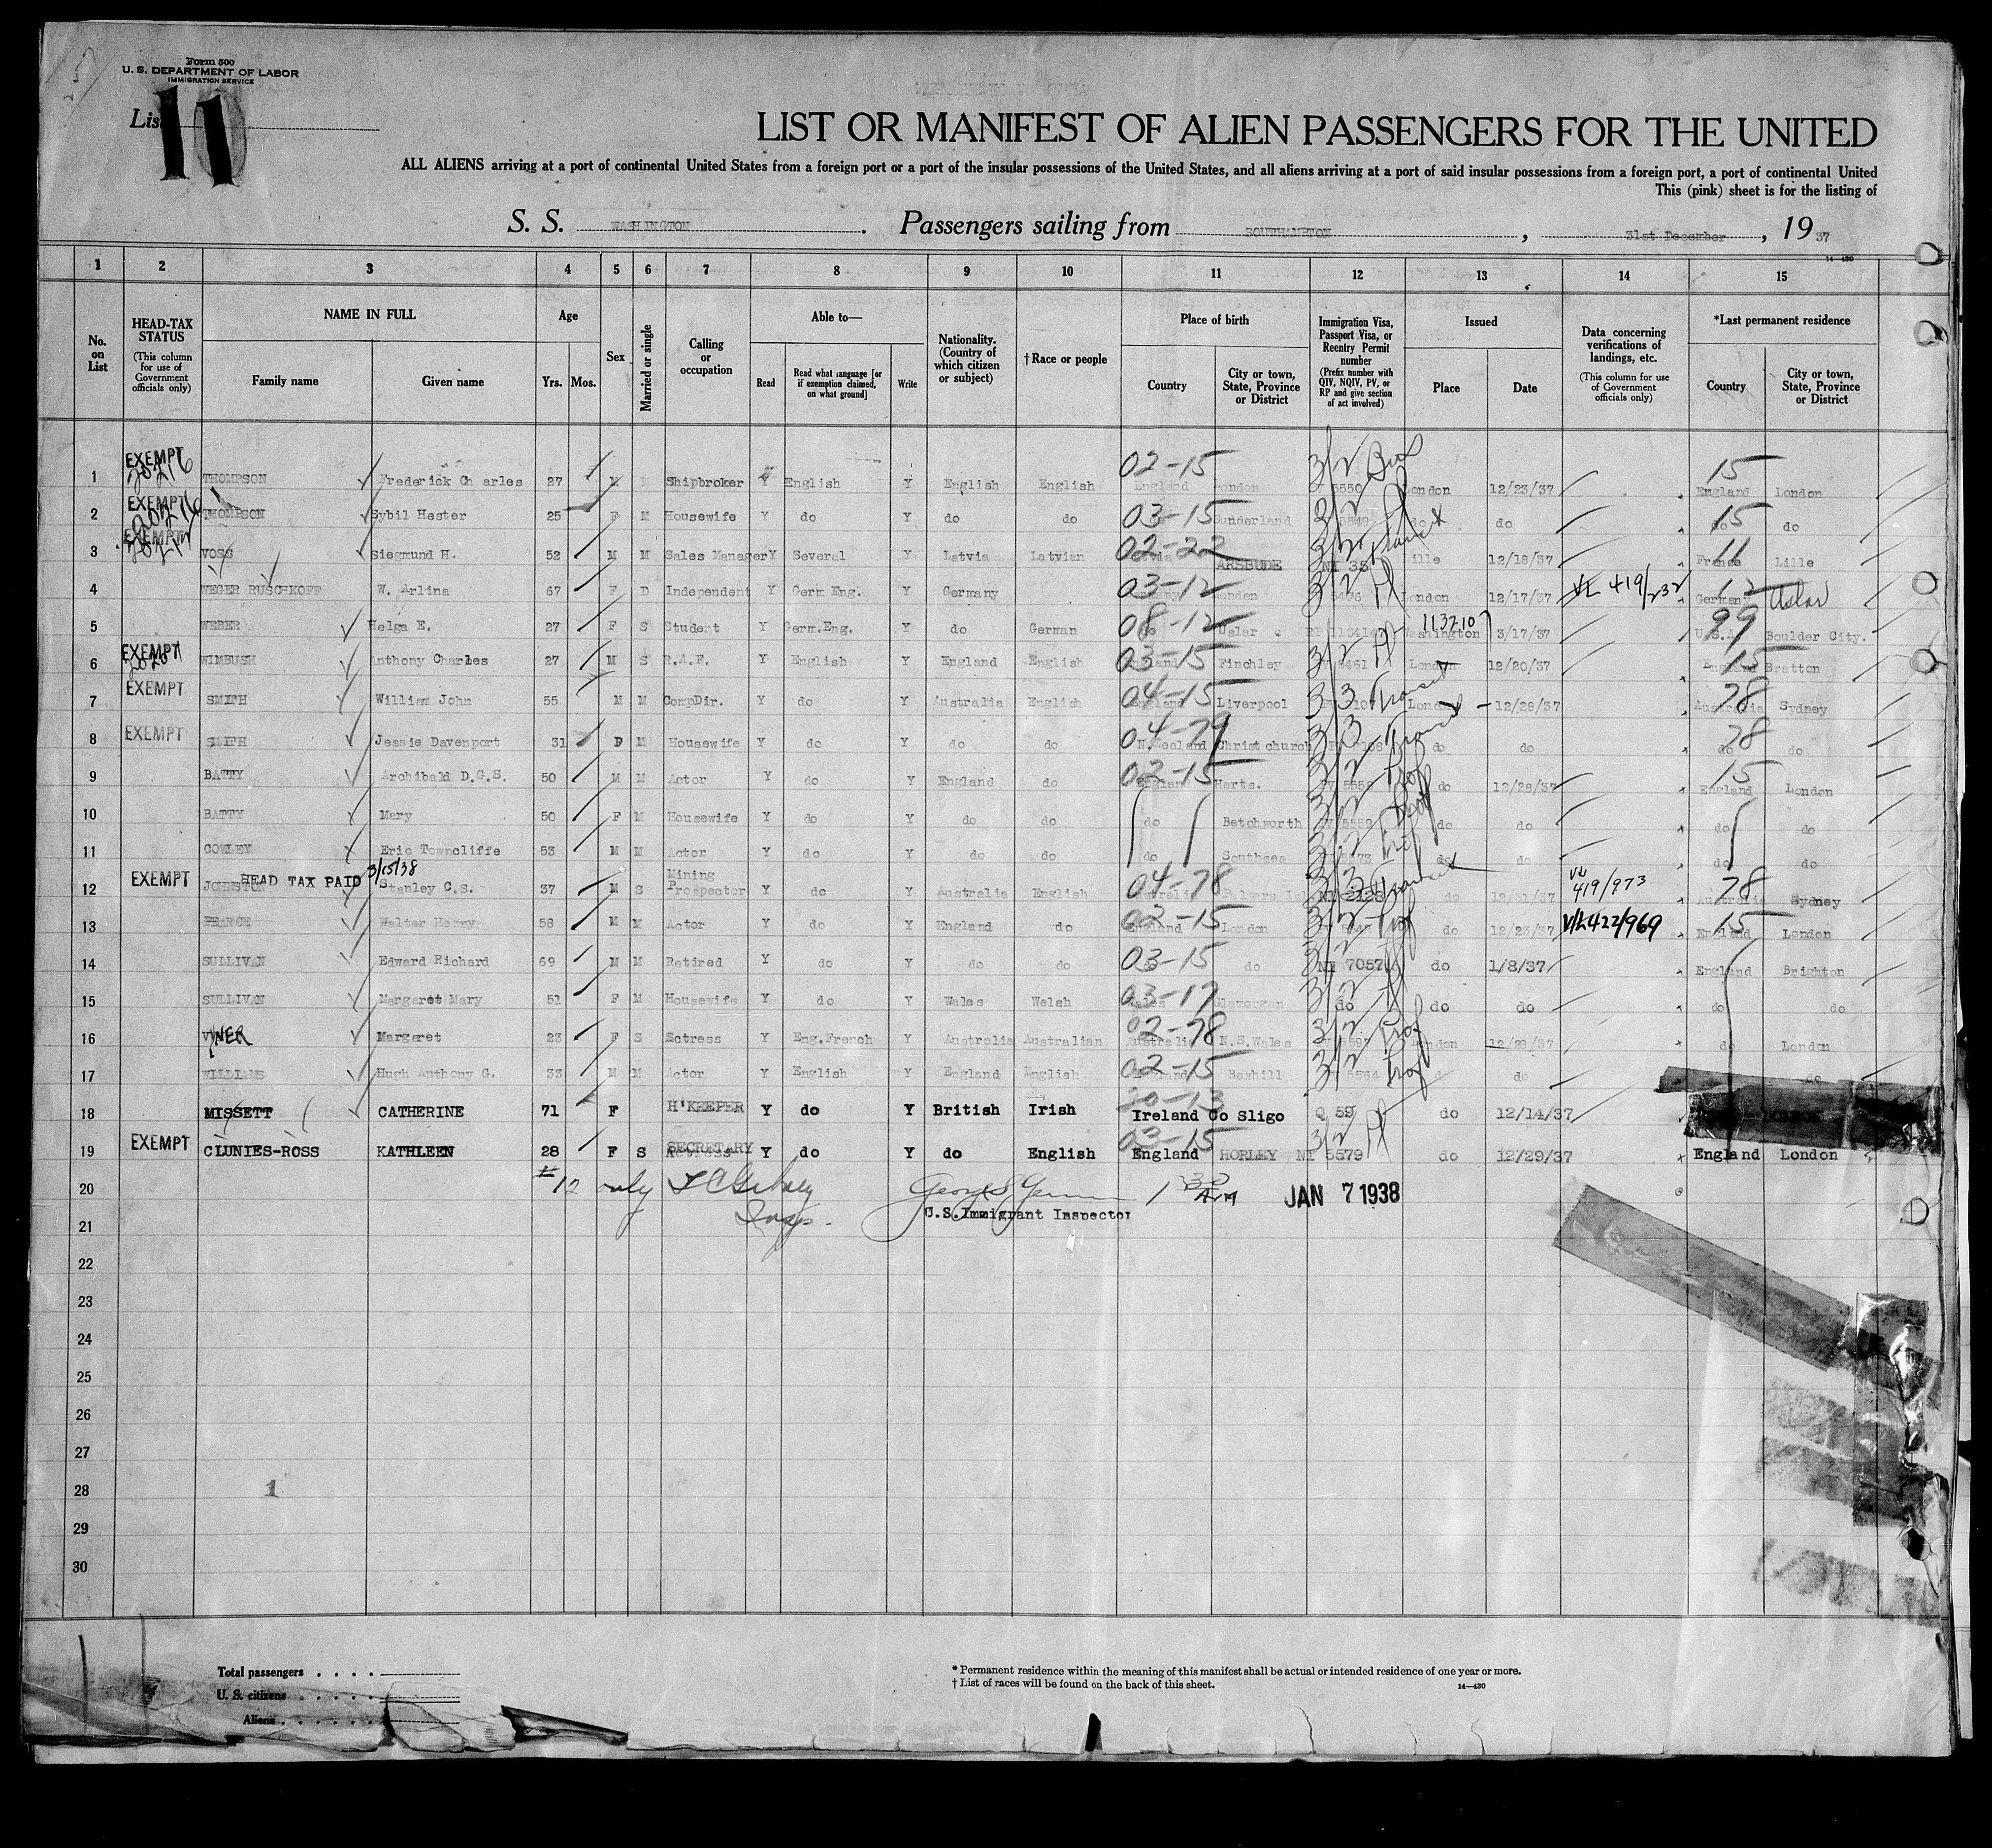 Form 500
U. S. DEPARTMENT OF LABOR
IMMIGRATION SERVICE
List 11
LIST OR MANIFEST OF ALIEN PASSENGERS FOR THE UNITED
ALL ALIENS arriving at a port of continental United States from a foreign port or a port of the insular possessions of the United States, and all aliens arriving at a port of said insular possessions from a foreign port, a port of continental United
This (pink) sheet is for the listing of
S. S. WASHINGTON. Passengers sailing from SOUTHAMPTON, 31st December, 19 37
14—430
1 2 3 4 5 6 7 8 9 10 11 12 13 14 15
No. on List
HEAD-TAX STATUS (This column for use of Government officials only)
NAME IN FULL
Family name
Given name
Age
Yrs. Mos.
Sex
Married or single
Calling or occupation
Able to—
Read
Read what language [or if exemption claimed, on what ground]
Write
Nationality. (Country of which citizen or subject)
†Race or people
Place of birth
Country
City or town, State, Province or District
Immigration Visa, Passport Visa, or Reentry Permit number (Prefix number with QIV, NQIV, PV, or RP and give section of act involved)
Issued
Place
Date
Data concerning verifications of landings, etc. (This column for use of Government officials only)
*Last permanent residence
Country
City or town, State, Province or District
1 EXEMPT THOMPSON Frederick Charles 27 M Shipbroker Y English Y English English 02-15 England London 3/2 5550 London 12/23/37 15 England London
2 EXEMPT THOMPSON Sybil Hester 25 F M Housewife Y do Y do do 03-15 Sunderland 3/2 do do 15 do do
3 EXEMPT VOSS Siegmund H. 52 M M Sales Manager Y Several Y Latvia Latvian 02-22 ARSBUDE 3/2 NI 35 Transit Lille 12/18/37 11 France Lille
4 WEGER RUSCHKOFF W. Arlina 67 F D Independent Y Germ Eng. Y Germany 03-12 3/2 London 12/17/37 VL 419/232 12 Germany Uslar
5 WEBER Helga E. 27 F S Student Y Germ.Eng. Y do German 08-12 do Uslar 113210 Washington 3/17/37 99 U.S.A. Boulder City.
6 EXEMPT WIMBUSH Anthony Charles 27 M S R.A.F. Y English Y England English 03-15 England Finchley 3/2 5461 London 12/20/37 15 England Bratton
7 EXEMPT SMITH William John 55 M M CompDir. Y do Y Australia English 04-15 England Liverpool 3/3 Transit London 12/28/37 78 Australia Sydney
8 EXEMPT SMITH Jessie Davenport 31 M Housewife Y do Y do do 04-79 N.Zealand Christchurch 3/3 Transit do do 78 do do
9 BATTY Archibald D.G.S. 50 M M Actor Y do Y England do 02-15 England Herts. 3/2 Prof do 12/28/37 15 England London
10 BATTY Mary 50 F M Housewife Y do Y do do do Betchworth 3/2 5559 Prof do do do do
11 COWLEY Eric Towncliffe 53 M M Actor Y do Y do do do Southsea 3/2 Prof do do do do
12 EXEMPT HEAD TAX PAID 3/15/38 JOHNSTON Stanley C.S. 37 M S Mining Prospector Y do Y Australia English 04-78 Australia 3/3 NI 2128 Transit do 12/31/37 419/973 78 Australia Sydney
13 PEARCE Walter Harry 58 M M Actor Y do Y England do 02-15 England London 3/2 Prof do 12/23/37 V/L 422/969 15 England London
14 SULLIVAN Edward Richard 69 M M Retired Y do Y do do 03-15 do 3/2 NI 7057 do 1/8/37 England Brighton
15 SULLIVAN Margaret Mary 51 F M Housewife Y do Y Wales Welsh 03-17 Wales Glamorgan 3/2 do do do do do
16 VYNER Margaret 23 F S Actress Y Eng.French Y Australia Australian 02-78 Australia N.S.Wales 3/2 Prof London 12/29/37 do London
17 WILLIAMS Hugh Anthony G. 33 M M Actor Y English Y England English 02-15 England Bexhill 3/2 Prof do do do
18 MISSETT CATHERINE 71 F H'KEEPER Y do Y British Irish Ireland Co Sligo Q 59 do 12/14/37
19 EXEMPT CLUNIES-ROSS KATHLEEN 28 F S SECRETARY Y do Y do English 03-15 England HORLEY 3/2 NI 5579 do 12/29/37 England London
20 # 12 only 1 30 AM JAN 7 1938
Insp.
U.S.Immigrant Inspector
21
22
23
24
25
26
27
28 1
29
30
Total passengers . . . .
U. S. citizens . . . . .
Aliens . . . . . .
* Permanent residence within the meaning of this manifest shall be actual or intended residence of one year or more.
† List of races will be found on the back of this sheet.
14—430